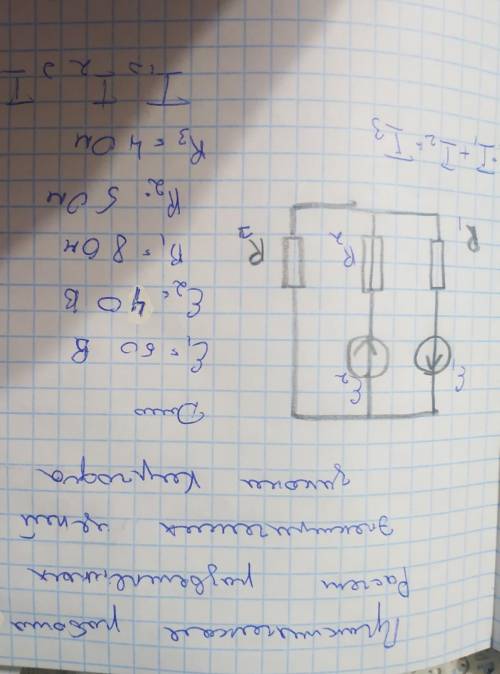 Практическая работа
Расчет разветвленных
электрических цепей
законы Кирхгофа
Дано
E₁ = 50 В
E₂ = 40 В
R₁ = 8 Ом
R₂ = 5 Ом
R₃ = 4 Ом
I₁ I₂ I
E₁
E₂
R₁
R₂
R₃
I₁ + I₂ = I₃